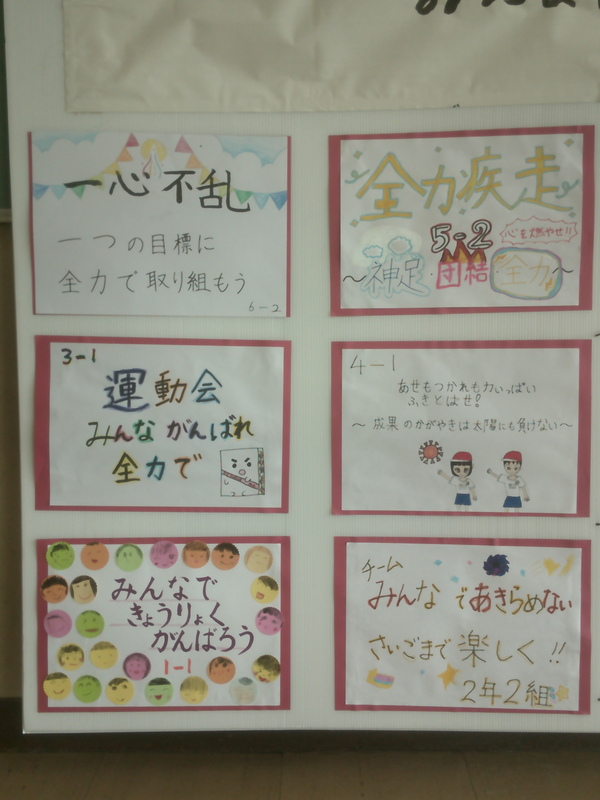 一心不乱
一つの目標に
全力で取り組もう
6-2
全力疾走
心を燃やせ!!
5-2
～神足・団結・全力～
3-1
運動会
みんながんばれ
全力で
4-1
あせもつかれも力いっぱい
ふきとばせ!
～成果のかがやきは太陽にも負けない～
みんなで
きょうりょく
がんばろう
1-1
チーム
みんなであきらめない
さいごまで楽しく!!
2年2組